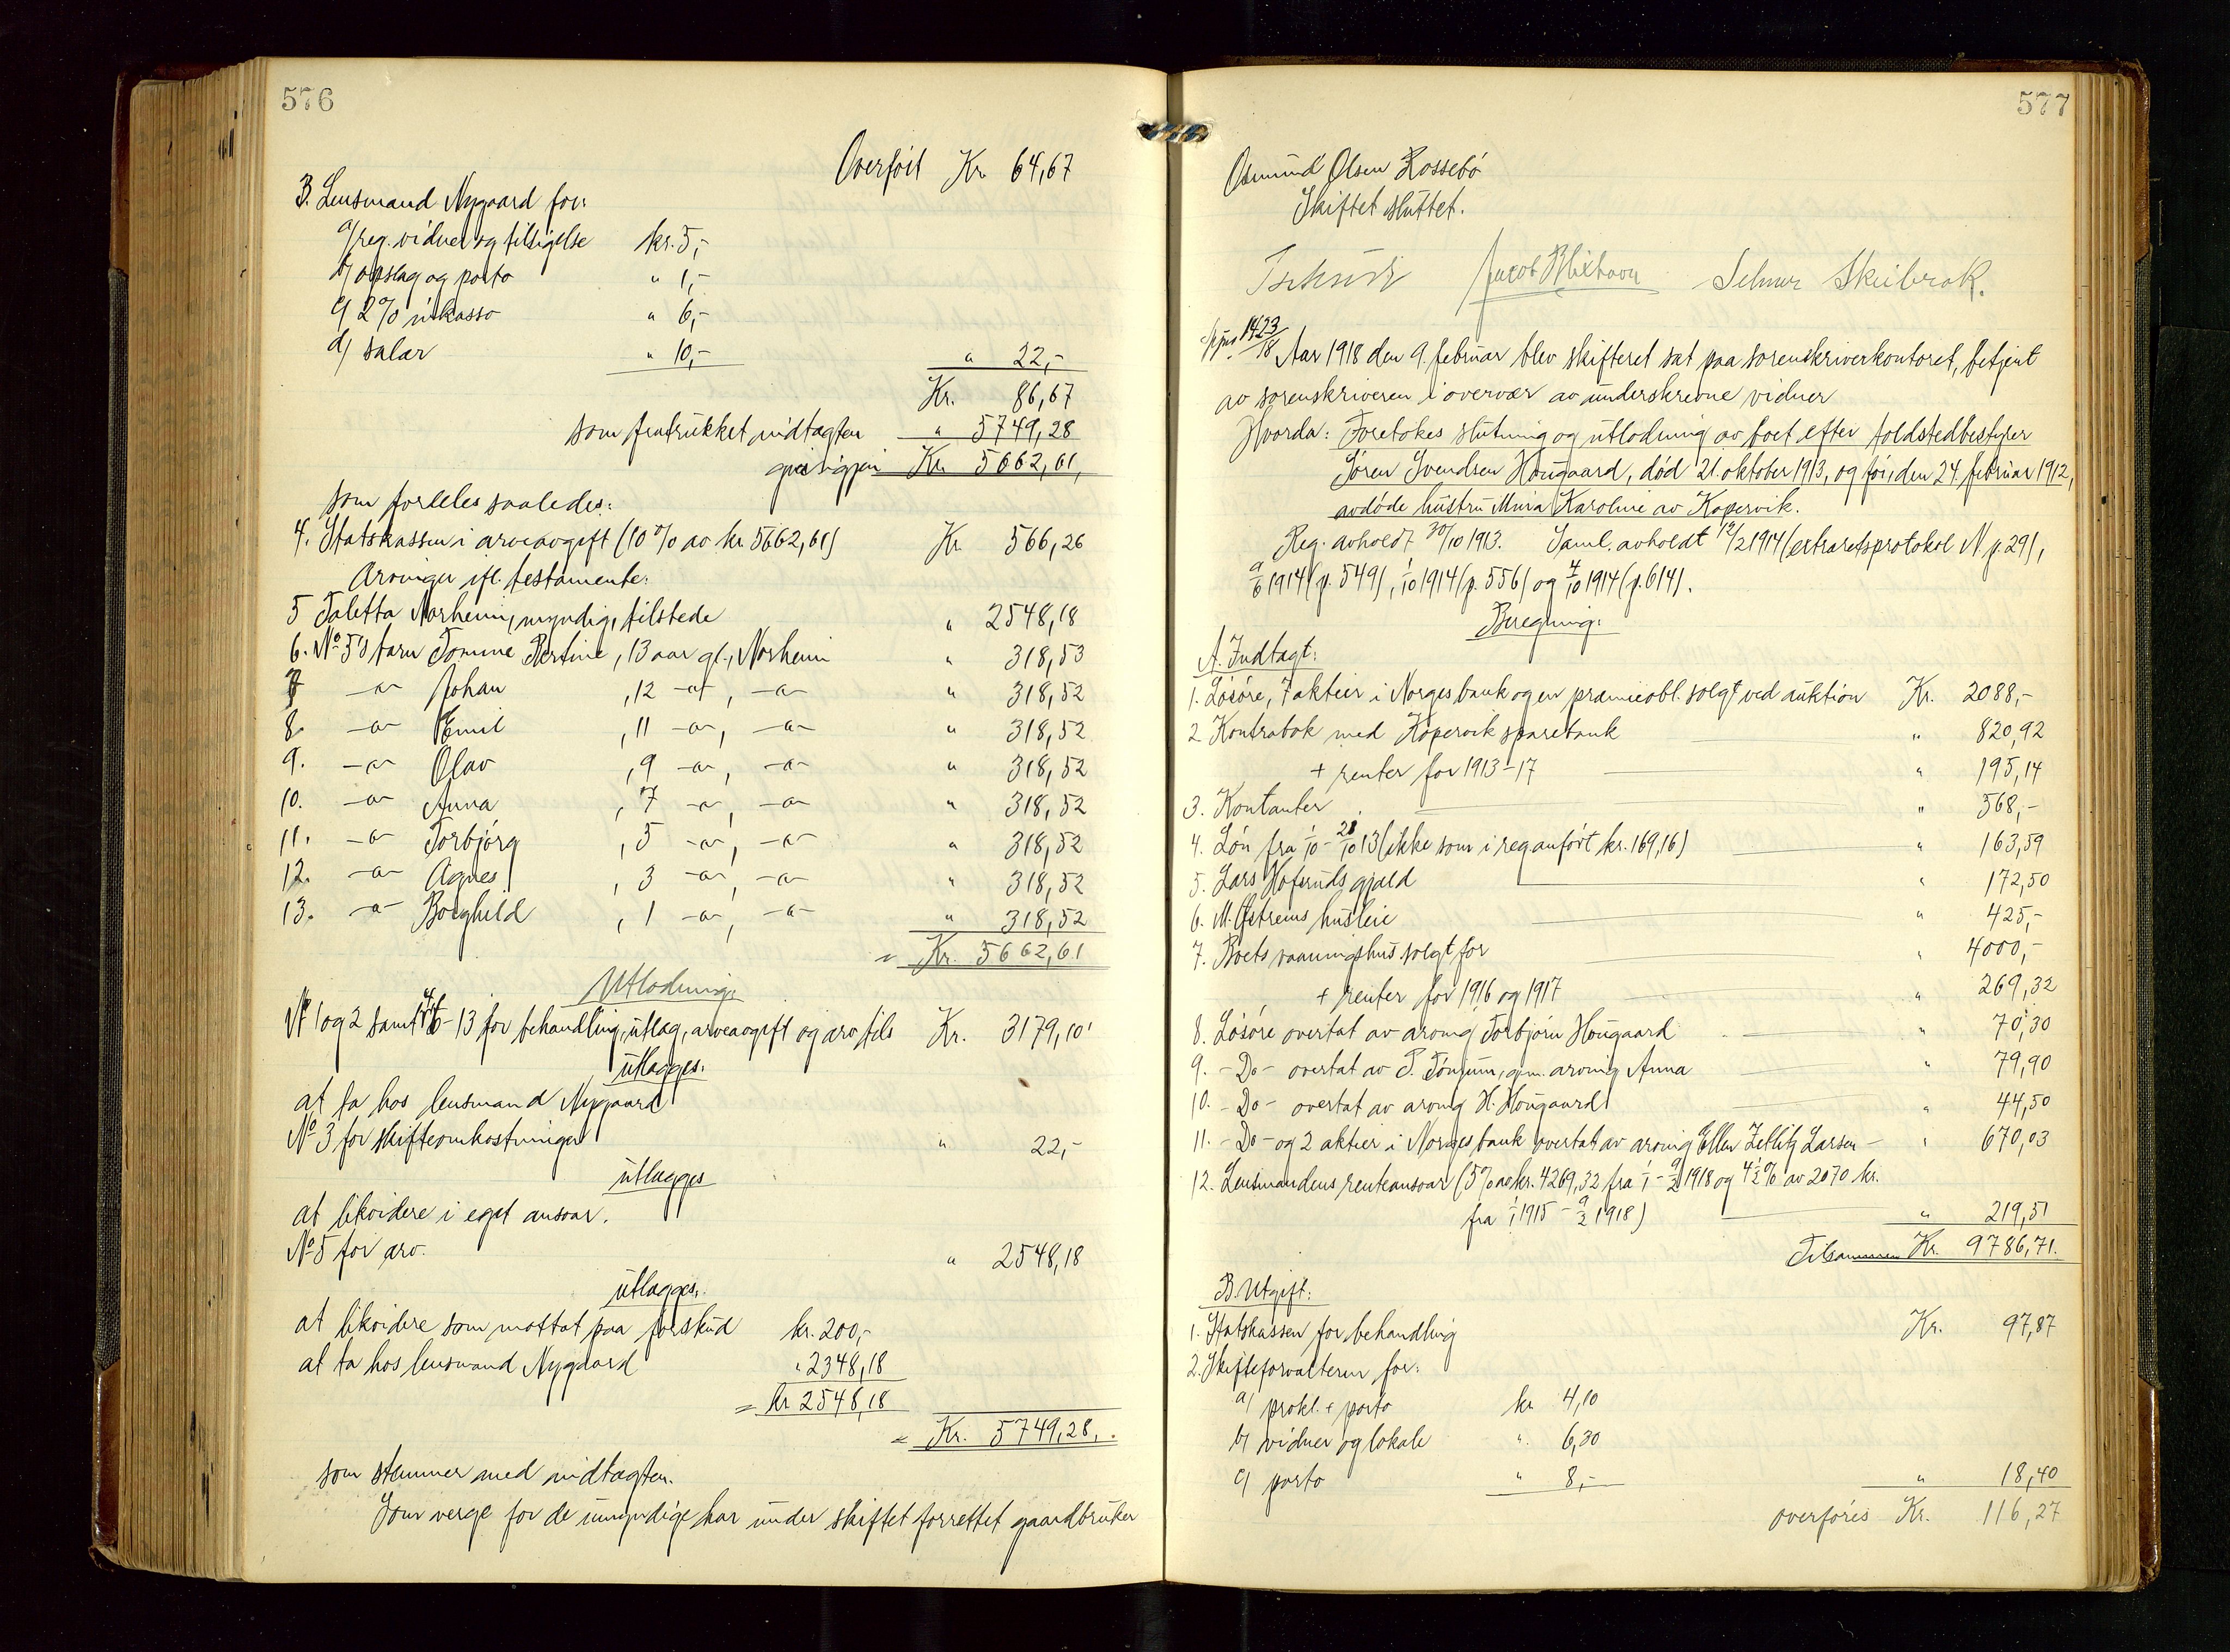 576
Overført Kr. 64,67
3. Lensmand Nygaard for:
a/ reg. vidner og tilsigelse kr. 5,-
b/ opslag og porto " 1,-
c/ 2% inkasso " 6,-
d/ salær " 10,- " 22,-
Kr. 86,67
som fratrukket indtægten " 5749,28
Kr. 5662,61
som fordeles saaledes:
4. Statskassen i arveavgift (10% av kr. 5662,61) Kr. 566,26
Arvinger ifl. testamente:
5 Taletta Norheim, myndig, tilstede " 2548,18
6. No 5's barn Tomine Bertine, 13 aar gl., Norheim " 318,53
7 -a- Johan , 12 -a-, -a- " 318,52
8. -a- Emil , 11 -a-, -a- " 318,52
9. -a- Olav , 9 -a-, -a- " 318,52
10. -a- Anna , 7 -a-, -a- " 318,52
11. -a- Torbjørg , 5 -a-, -a- " 318,52
12. -a- Agnes , 3 -a-, -a- " 318,52
13. -a- Borghild , 1 -a-, -a- " 318,52
= Kr. 5662,61
Utlodning:
No 1 og 2 samt 4, 6-13 for behandling, utlæg, arveavgift og arv tils Kr. 3179,10
utlægges:
at ta hos lensmand Nygaard
No 3 for skifteomkostninger " 22,-
utlægges
at likvidere i eget ansvar.
No 5 for arv. " 2548,18
utlægges:
at likvidere som mottat paa forskud kr. 200,-
at ta hos lensmand Nygaard " 2348,18
= kr 2548,18
= Kr. 5749,28.
som stemmer med indtægten.
Som verge for de umyndige har under skiftet forrettet gaardbruker
577
Osmund Olsen Rossebø
Skiftet sluttet.
Jacob Blikhavn Selmer Skeibrok.
1423/18 Aar 1918 den 9. februar blev skifteret sat paa sorenskriverkontoret, betjent
av sorenskriveren i overvær av underskrevne vidner
Hvorda: Foretokes slutning og utlodning av boet efter toldstedbestyrer
Sören Svendsen Hougaard, død 21. oktober 1913, og før, den 24. februar 1912,
avdøde hustru Maria Karoline av Kopervik.
Reg. avholdt 30/10 1913. Saml. avholdt 12/2 1914 (extraretsprotokol N p. 29),
9/6 1914 (p. 549), 1/10 1914 (p. 556) og 4/10 1914 (p. 614).
Beregning:
A. Indtægt:
1. Løsøre, 7 aktier i Norges bank og en præmieobl. solgt ved auktion Kr. 2088,-
2 Kontrabok med Kopervik sparebank " 820,92
+ renter for 1913-17 " 195,14
3. Kontanter " 568,-
4. Løn fra 1/10 - 21/10 13 (ikke som i reg anført kr. 169,16) " 163,59
5. Lars gjæld " 172,50
6. M. Østreims husleie " 425,-
7. Boets vaaningshus solgt for " 4000,-
+ renter for 1916 og 1917 " 269,32
8. Løsøre overtat av arving Torbjørn Hougaard " 70,30
9. -Do- overtat av T. Tönjum, gm. arving Anna " 79,90
10. -Do- overtat av arving H. Hougaard " 44,50
11. -Do- og 2 aktier i Norges bank overtat av arving Ellen Zetlitz Larsen - " 670,03
12. Lensmandens renteansvar (5% av kr. 4269,32 fra 1/1 - 9/2 1918 og 4½% av 2070 kr.
fra 1/1 1915 - 9/2 1918) " 219,51
Tilsammen Kr. 9786,71.
B. Utgift:
1. Statskassen for behandling Kr. 97,87
2. Skifteforvalteren for:
a/ prokl. + porto kr 4,10
b/ vidner og lokale " 6,30
c/ porto " 8,- " 18,40
overføres Kr. 116,27